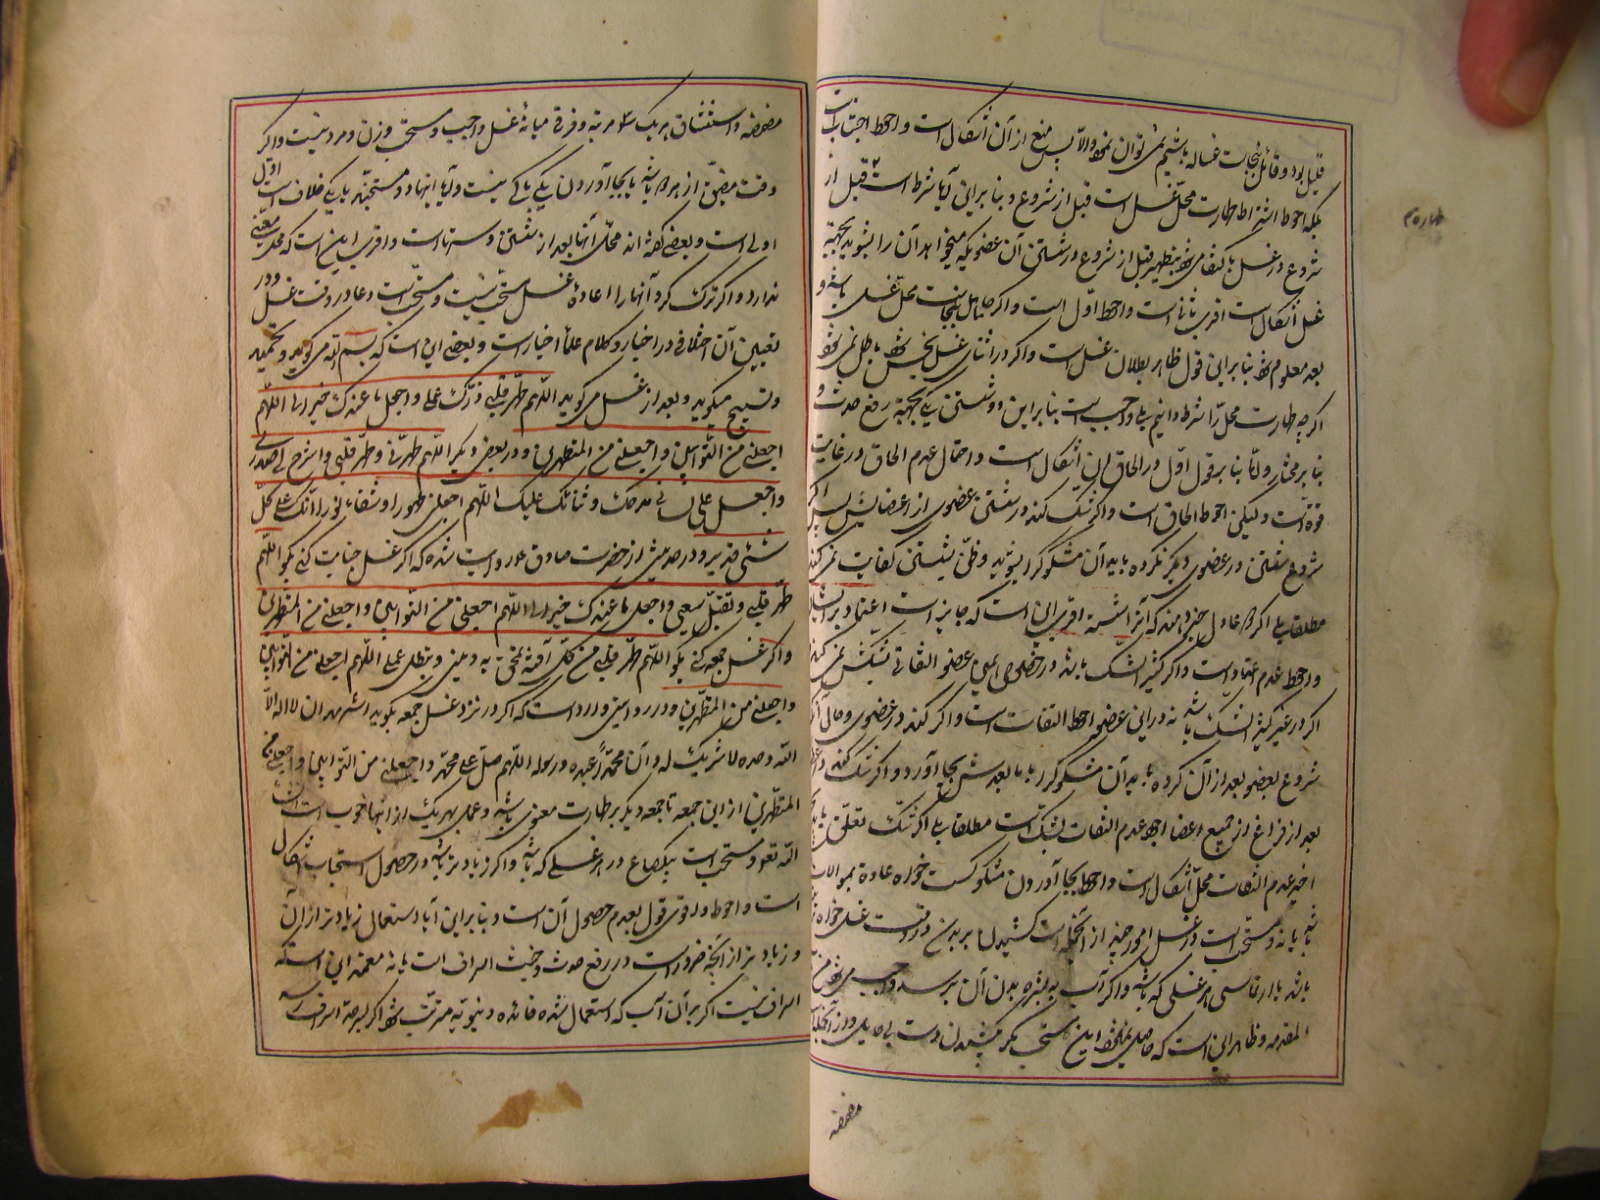 قلیل بود و قائل بنجاست غساله باشیم نمی توان نمود والا پس منع از آن اشکال است و احوط اجتناب است
بلکه احوط اشتراط طهارت محل غسل است قبل از شروع و بنا براین آیا شرط است قبل از
شروع در غسل یا کفایت تطهیر قبل از شروع در شستن آن عضویکه میخواهد آن را بشوید بجهة
غسل اشکال است اقرب ثانی است و احوط اول است و اگر نجاست محل غسل
بعد معلوم شود بنا براین قول ظاهر بطلان غسل است و اگر در اثنای غسل نجس شود باطل نمی شود
اگر چه طهارت محل را شرط دانیم بلی واجب است بنا براین دو شستن یکی بجهة رفع حدث و
بنا بر مختار و اما بنا بر قول اول در الحاق این اشکال است و احتمال عدم الحاق در غایت
قوة است ولیکن احوط الحاق است و اگر شک کند در شستن عضوی از اعضا پس اگر
شروع بشستن در عضوی دیگر نکرده باید آن مشکوک را بشوید و ظن بشستن کفایت نمی کند
مطلقا بلی اگر عادل خبر دهد که آنرا شسته اقرب این است که جایز است اعتماد بر
و احوط عدم اعتماد است و اگر کثیر الشک باشد در خصوص این عضو التفات بشکش نمی کند
اگر در غیر کثیر الشک باشد نه در این عضو احوط التفات است و اگر شک کند در عضوی و حال آنکه
شروع بعضو بعد از آن کرده باید آن مشکوک را با بعدش بجا آورد و اگر شک کند
بعد از فراغ از جمیع اعضا احوط عدم التفات بشک است مطلقا بلی اگر شک تعلق
اخیر عدم التفات محل اشکال است و احوط بجا آوردن مشکوکست خواه عادة بموالات
باشد یا نه و مستحب است در غسل امور چند از آنجمله است کشیدن بر بدن در وقت غسل خواه
باشد یا ارتماسی هر غسلی که باشد و اگر آب به بشره بدن آن نرسد واجب می شود من
المقدمه و ظاهر این است که حاصل نمیشود این مستحب مگر بکشیدن دست بی حایل و از آنجمله
مضمضه
مضمضه و استنشاق هر یک سه مرتبه و فرقی میانه غسل واجب و مستحب و زن و مرد نیست و اگر
وقت مضیق از هر دو باشد یا بجا آوردن یکی باکی نیست و آیا اینها دو مستحبند یا یکی خلاف است اول
اولی است و بعضی گفته اند محل آنها بعد از شستن دستهاست و اقرب این است که محل معینی
ندارد و اگر ترک کرد آنها را اعاده غسل مستحب نیست و مستحب است دعا در وقت غسل و در
تعیین آن اختلاف در اخبار و کلام علما اخیار است و بعضی این است که بسم الله می گوید و تحمید
و تسبیح میگوید و بعد از غسل می گوید اللهم طهر قلبی و زک عملی و اجعل ما عندک خیر الی اللهم
اجعلنی من التوابین و اجعلنی من المتطهرین و در بعضی دیگر اللهم طهرنی و طهر قلبی و اشرح لی صدری
و اجعل علی لسانی مدحتک و ثنائک علیک اللهم اجعلنی طهورا و شفاء و نورا انک علی کل
شئی قدیر و در حدیثی از حضرت صادق ع روایت شده که اگر غسل جنابت کنی بگو اللهم
طهر قلبی و تقبل سعیی و اجعل ما عندک خیر الی اللهم اجعلنی من التوابین و اجعلنی من المتطهرین
و اگر غسل جمعه کنی بگو اللهم طهر قلبی من کل آفة تمحق به دینی و تبطل عملی اللهم اجعلنی من التوابین
و اجعلنی من المتطهرین و در روایتی وارد است که اگر در نزد غسل جمعه بگوید اشهد ان لا اله الا
الله وحده لا شریک له و ان محمدا عبده و رسوله اللهم صل علی محمد و اجعلنی من التوابین و اجعلنی من
المتطهرین از این جمعه تا جمعه دیگر بر طهارت معنوی باشد و عمل بهر یک از اینها خوب است
الله تعه و مستحب است یکصاع در هر غسلی که باشد و اگر زیادتر باشد در حصول استحباب اشکال
است و احوط و اقوی قول بعدم حصول آن است و بنا براین آیا استعمال زیادتر از آن
و زیادتر از آنچه ضرور است در رفع حدث و خبث اسراف است یا نه معتمد این است که
اسراف نیست اگر بر آن آب که استعمال شده فائده دنیویه مترتب شود اگر